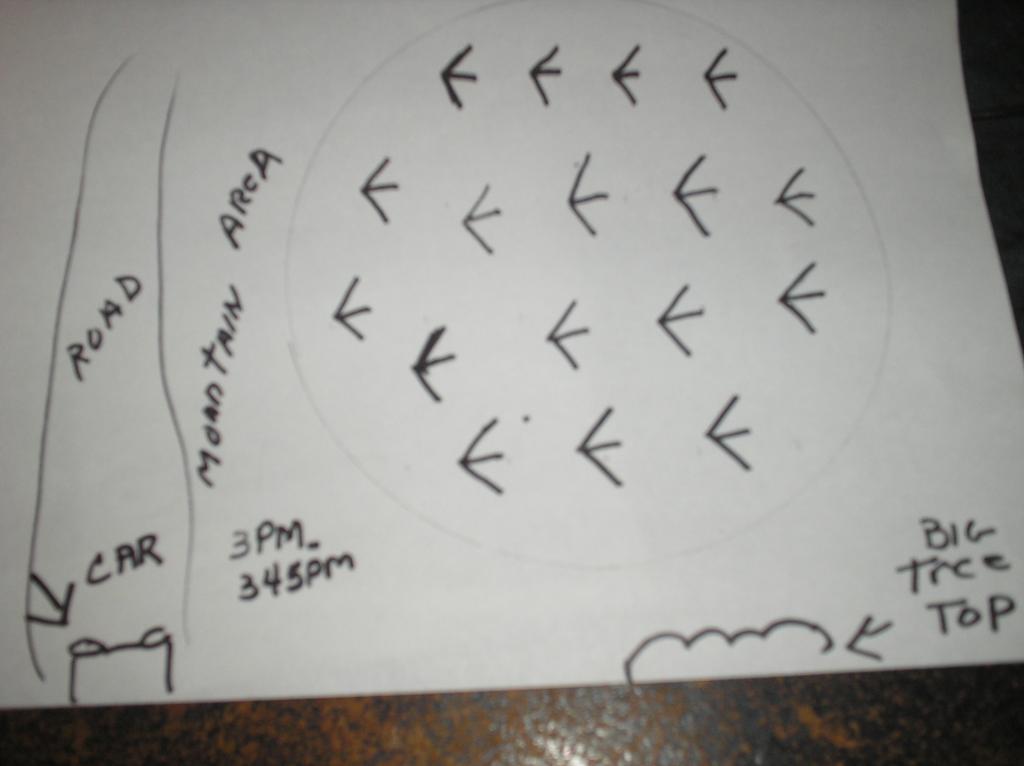 ROAD
MOANTAIN AREA
CAR
3PM-
345PM
BIG
TREE
TOP